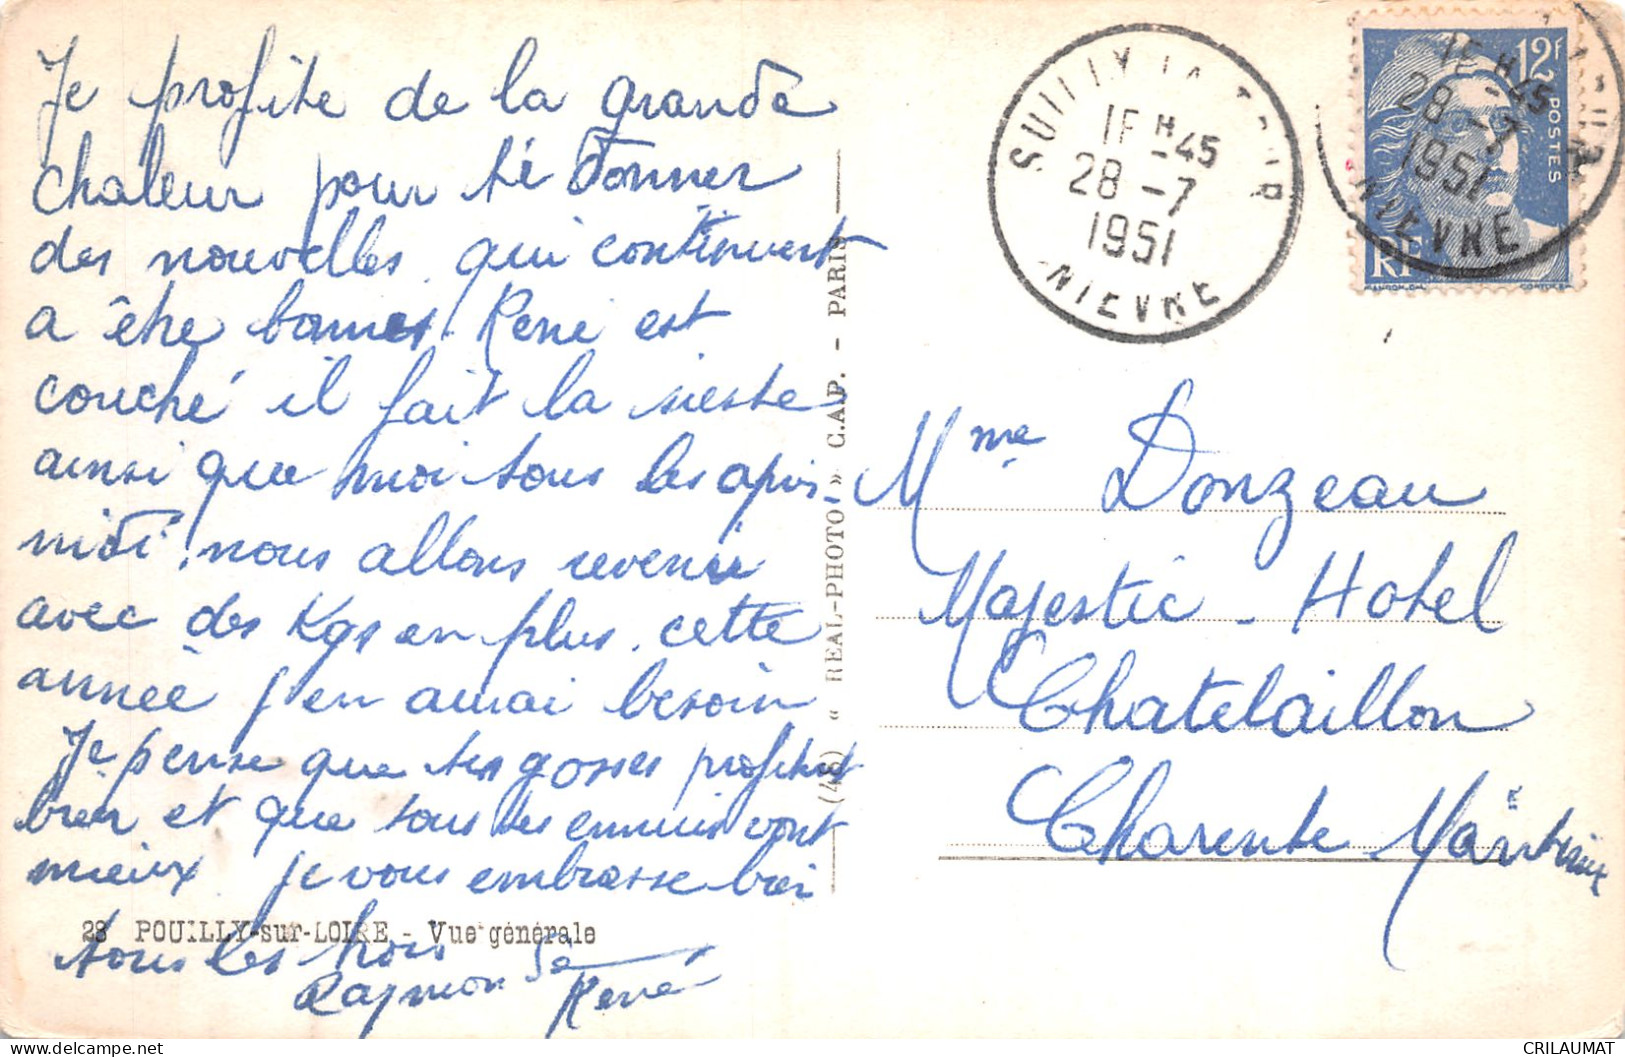 Je profite de la grande
chaleur pour té donner
des nouvelles qui continuent
a être bonnes. René est
couché il fait la sieste
ainsi que moi tous les après-
midi, nous allons revenir
avec des Kgs en plus. cette
année j'en aurai besoin
Je pense que tes gosses profitent
bien et que tous tes ennuis vont
mieux. je vous embrasse bien
tous les trois
Raymonde
René
28 POUILLY-sur-LOIRE - Vue générale
(48) « REAL-PHOTO » C.A.P. - PARIS
SUILLY LA TOUR
1F H45
28 -7
1951
NIEVRE
12F
POSTES
RF
1F H45
28 -7
1951
NIEVRE
Mme Donzeau
Majestic - Hotel
Chatelaillon
Charente Maritime
CRILAUMAT